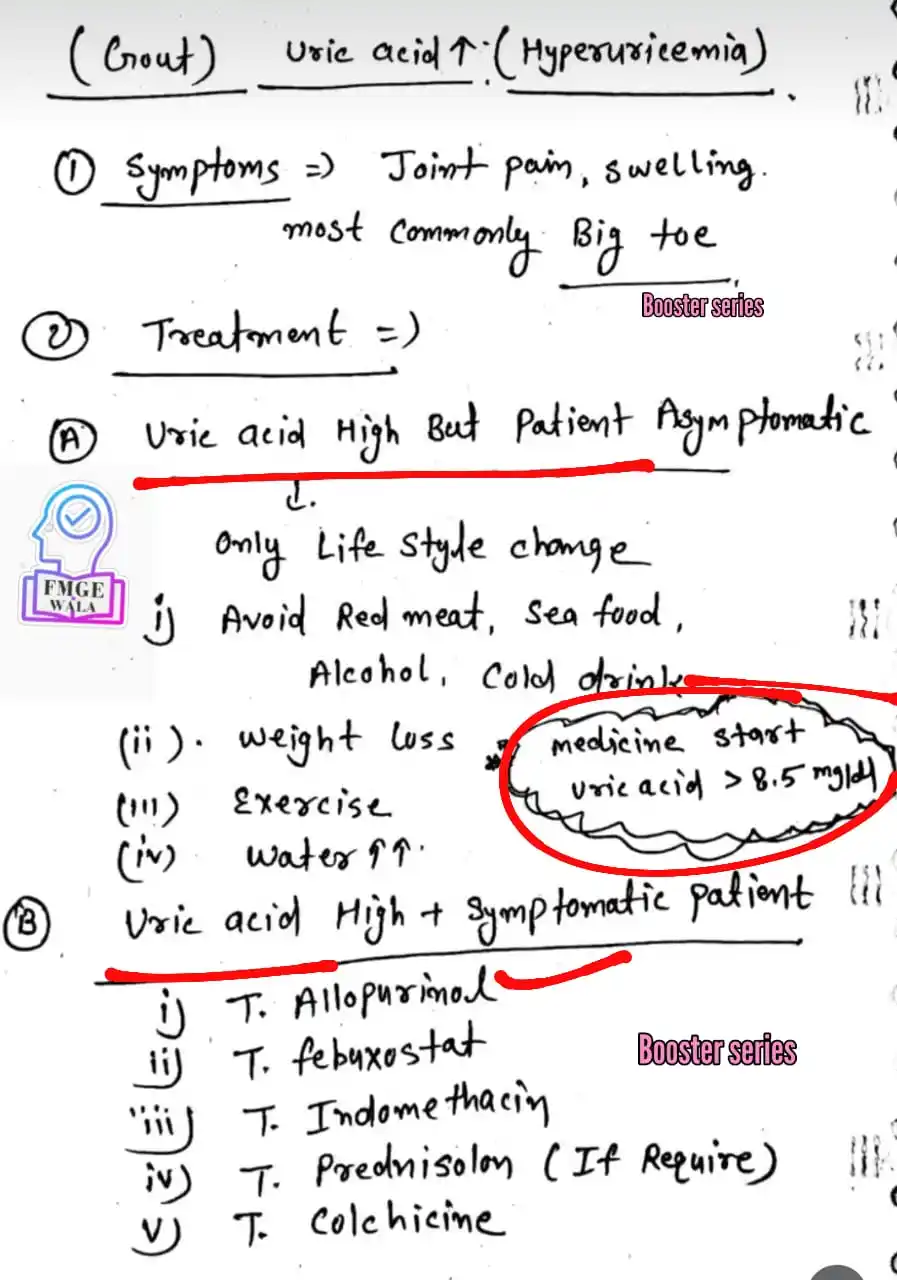 (Gout) Uric acid ↑ : (Hyperuricemia).
① Symptoms => Joint pain, swelling.
most commonly Big toe
Booster series
② Treatment =>
Ⓐ Uric acid High But Patient Asymptomatic
↓.
Only Life Style change
i) Avoid Red meat, Sea food,
Alcohol, Cold drink
FMGE
WALA
(ii). weight loss
* medicine start
uric acid > 8.5 mg/dl
(iii) Exercise
(iv) water ↑↑.
Ⓑ Uric acid High + Symptomatic patient
i) T. Allopurinol
ii) T. febuxostat
Booster series
iii) T. Indomethacin
iv) T. Prednisolon (If Require)
v) T. Colchicine